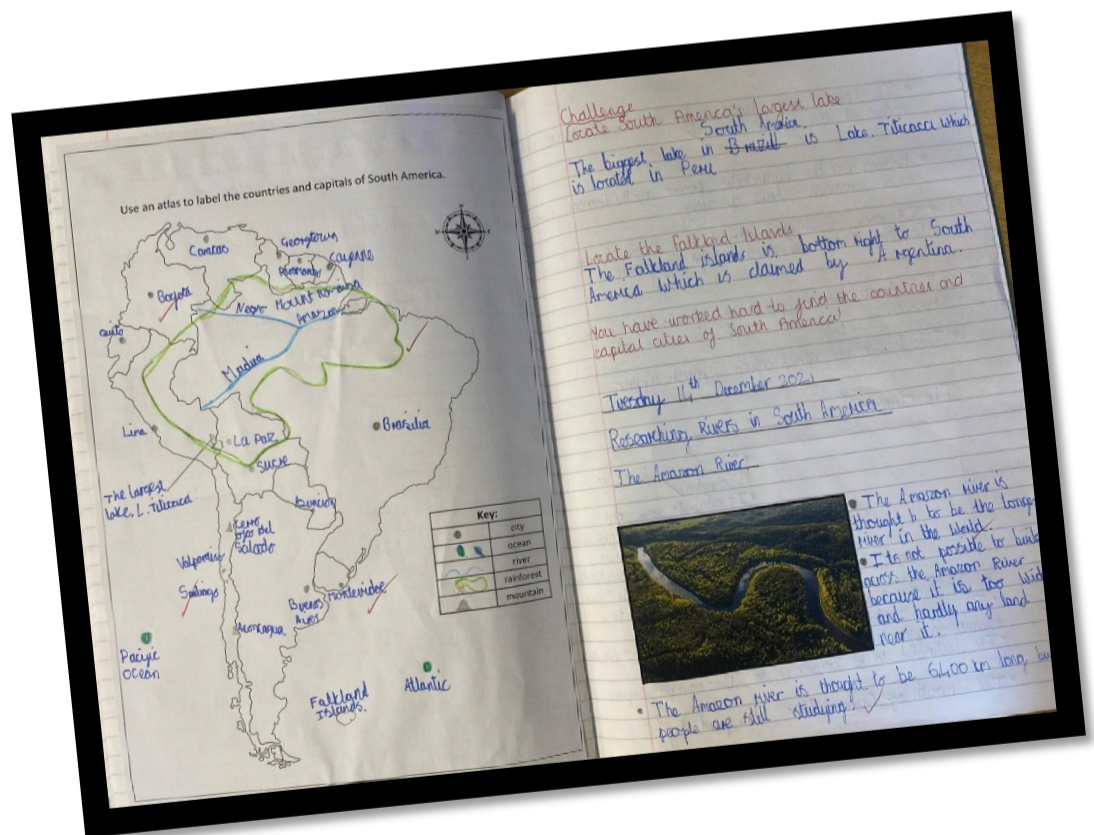 Use an atlas to label the countries and capitals of South America.
Caracas
Georgetown
Cayenne
Paramaribo
Bogotá
Negro
Mount Roraima
Amazon
Quito
Madira
Lima
La Paz
Brasilia
Sucre
The largest
lake, L. Titicaca
Asuncion
Cerro
Ojos Del
Salado
Valparaiso
Santiago
Buenos
Aires
Montevideo
Aconcagua
Pacific
Ocean
Falkland
Islands.
Atlantic
Key:
city
ocean
river
rainforest
mountain
Challenge
Locate South America's largest lake
South America
The biggest lake in Brazil is Lake Titicaca which
is located in Peru
Locate the Falkland Islands
The Falkland islands is bottom right to South
America which is claimed by Argentina.
You have worked hard to find the countries and
capital cities of South America!
Tuesday 14th December 2021
Researching Rivers in South America
The Amazon River
• The Amazon River is
thought to be the longe
river in the world.
• Its not possible to buil
across the Amazon River
because it is too wid
and hardly any land
near it.
• The Amazon River is thought to be 6,400 km long bu
people are still studying!